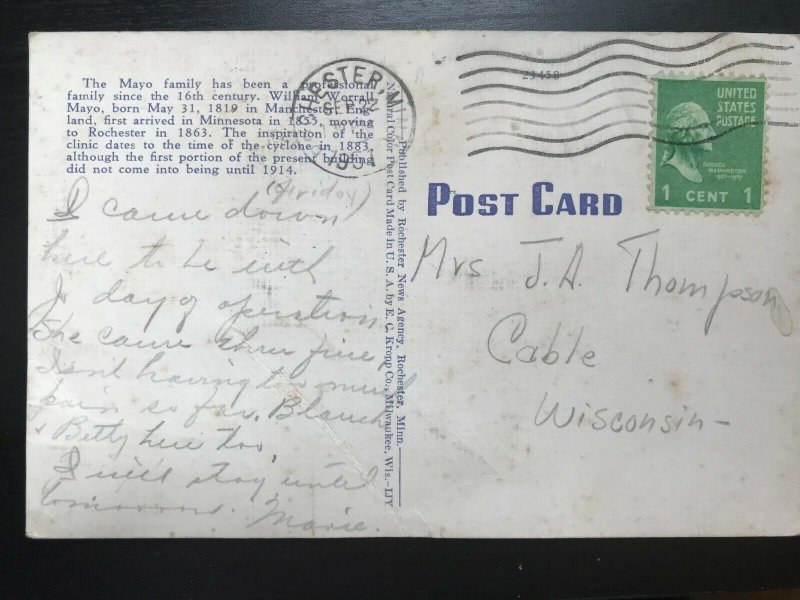 The Mayo family has been a professional
family since the 16th century. William Worrall
Mayo, born May 31, 1819 in Manchester, Eng
land, first arrived in Minnesota in 1855, moving
to Rochester in 1863. The inspiration of the
clinic dates to the time of the cyclone in 1883,
although the first portion of the present building
did not come into being until 1914.
(Friday)
I came down
here to be with
J day of operation
She came thru fine
Isn't having too much
pain so far. Blanch
& Betty here too,
I will stay until
tomorrow. Marie.
Published by Rochester News Agency, Rochester, Minn.
Natural Color Post Card Made in U. S. A. by E. C. Kropp Co., Milwaukee, Wis.—IJY
ESTER, M
SEP
1951
23458
UNITED
STATES
POSTAGE
GEORGE
WASHINGTON
1 CENT 1
POST CARD
Mrs J. A. Thompson
Cable
Wisconsin-